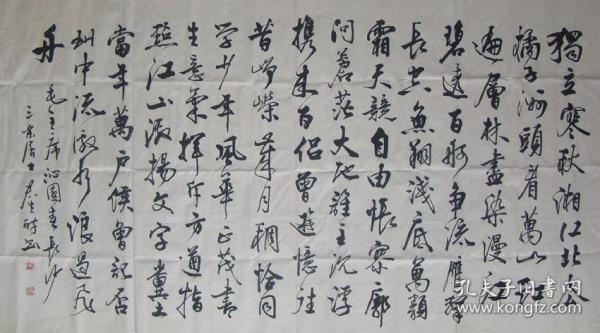 獨立寒秋湘江北去
橘子洲頭看萬山紅
遍層林盡染漫江
碧透百舸争流鷹擊
長空魚翔淺底萬類
霜天競自由悵寥廓
问蒼茫大地誰主沉浮
携来百侣曾遊憶往
昔崢嶸歲月稠恰同
学少年風華正茂書
生意氣揮斥方遒指
點江山激揚文字糞土
當年萬户侯曾記否
到中流激水浪遏飛
舟
毛主席沁園春長沙
孔夫子旧书网